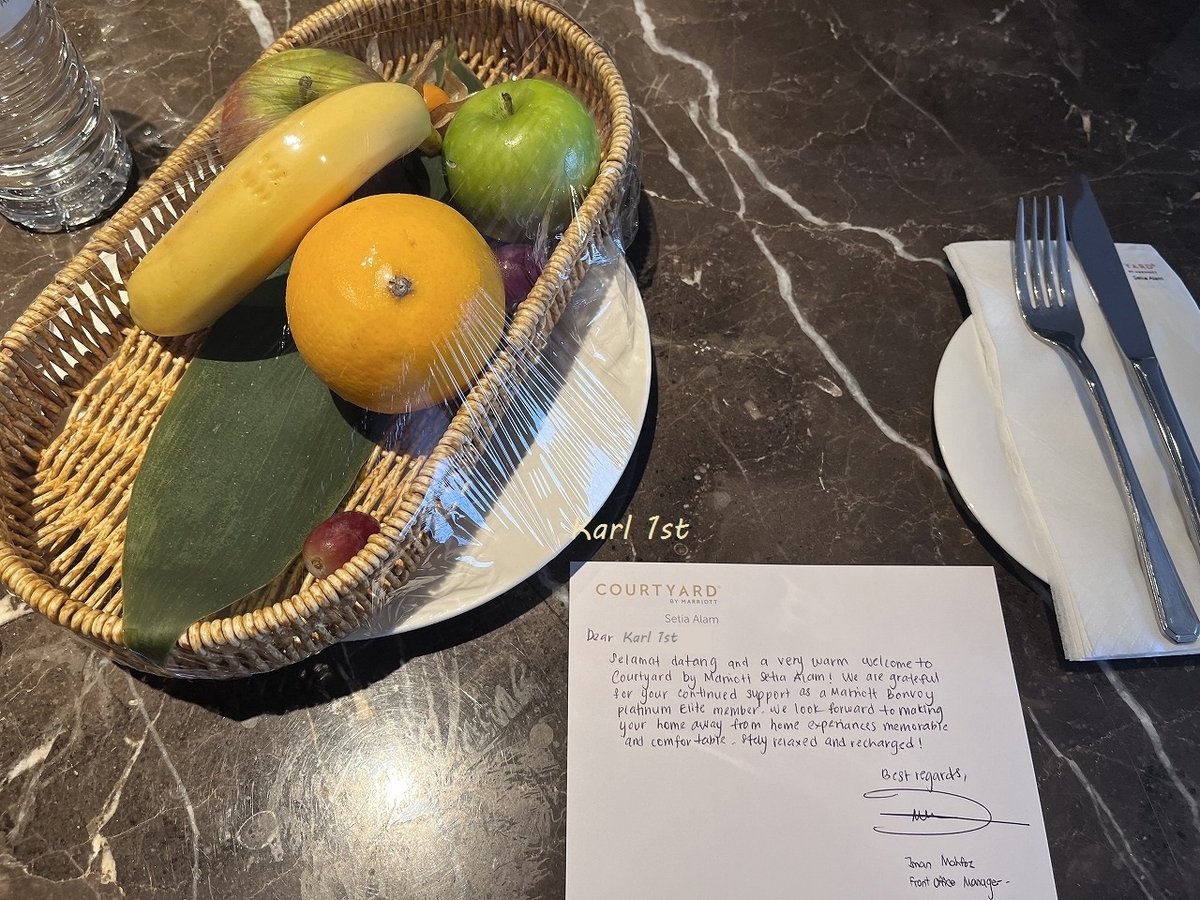 YARD
BY MARRIOTT
Setia Alam
Karl 1st
COURTYARD
BY MARRIOTT
Setia Alam
Dear Karl 1st
Selamat datang and a very warm welcome to
Courtyard by Marriott Setia Alam! We are grateful
for your continued support as a Marriott Bonvoy
platinum Elite member. We look forward to making
your home away from home experiances memorable
and comfortable. Stay relaxed and recharged!
Best regards,
Mahfoz
Front Office Manager-